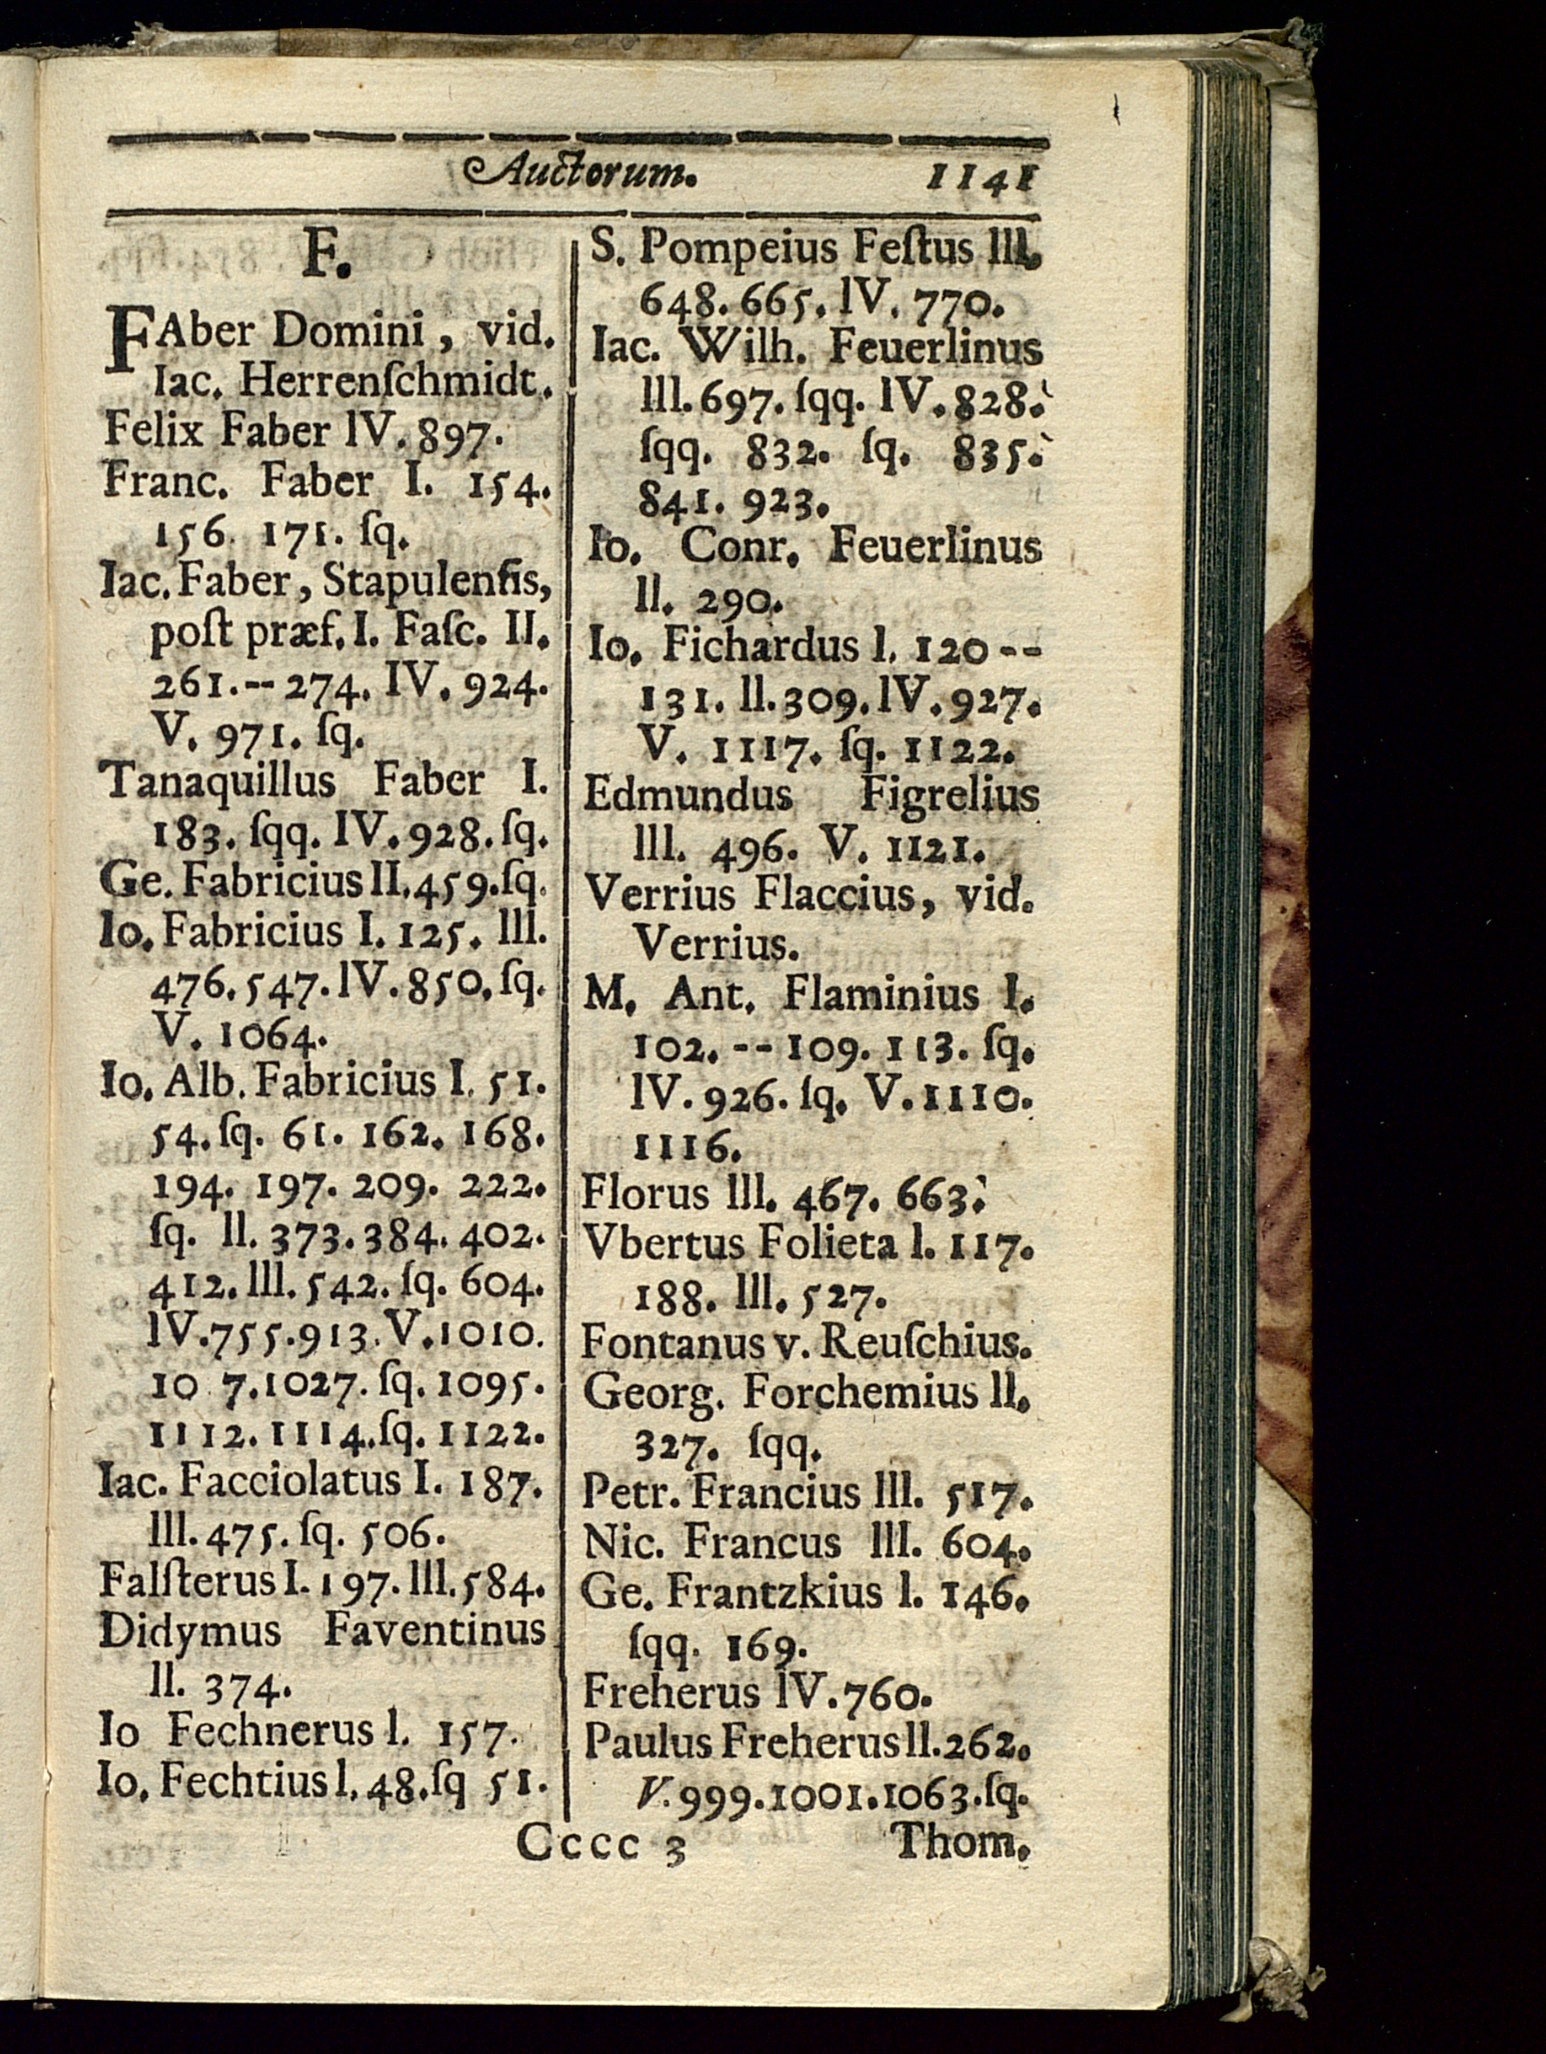 Auctorum. 1141
F.
FAber Domini, vid.
Iac. Herrenſchmidt.
Felix Faber lV. 897.
Franc. Faber I. 154.
156. 171. ſq.
Iac. Faber, Stapulenſis,
poſt præf. I. Faſc. II.
261. -- 274. IV. 924.
V. 971. ſq.
Tanaquillus Faber I.
183. ſqq. IV. 928. ſq.
Ge. Fabricius II. 459. ſq.
Io. Fabricius I. 125. lll.
476. 547. lV. 850. ſq.
V. 1064.
Io. Alb. Fabricius I. 51.
54. ſq. 61. 162. 168.
194. 197. 209. 222.
ſq. ll. 373. 384. 402.
412. lll. 542. ſq. 604.
lV. 755. 913. V. 1010.
10 7. 1027. ſq. 1095.
1112. 1114. ſq. 1122.
Iac. Facciolatus I. 187.
lll. 475. ſq. 506.
Falſterus I. 197. lll. 584.
Didymus Faventinus
ll. 374.
Io Fechnerus l. 157.
Io. Fechtius l. 48. ſq 51.
S. Pompeius Feſtus lll.
648. 665. lV. 770.
Iac. Wilh. Feuerlinus
lll. 697. ſqq. lV. 828.
ſqq. 832. ſq. 835.
841. 923.
Io. Conr. Feuerlinus
ll. 290.
Io. Fichardus l. 120 --
131. ll. 309. lV. 927.
V. 1117. ſq. 1122.
Edmundus Figrelius
lll. 496. V. 1121.
Verrius Flaccius, vid.
Verrius.
M. Ant. Flaminius I.
102. -- 109. 113. ſq.
lV. 926. ſq. V. 1110.
1116.
Florus lll. 467. 663.
Vbertus Folieta l. 117.
188. lll. 527.
Fontanus v. Reuſchius.
Georg. Forchemius ll.
327. ſqq.
Petr. Francius lll. 517.
Nic. Francus lll. 604.
Ge. Frantzkius l. 146.
ſqq. 169.
Freherus lV. 760.
Paulus Freherus ll. 262.
V. 999. 1001. 1063. ſq.
Cccc 3 Thom.